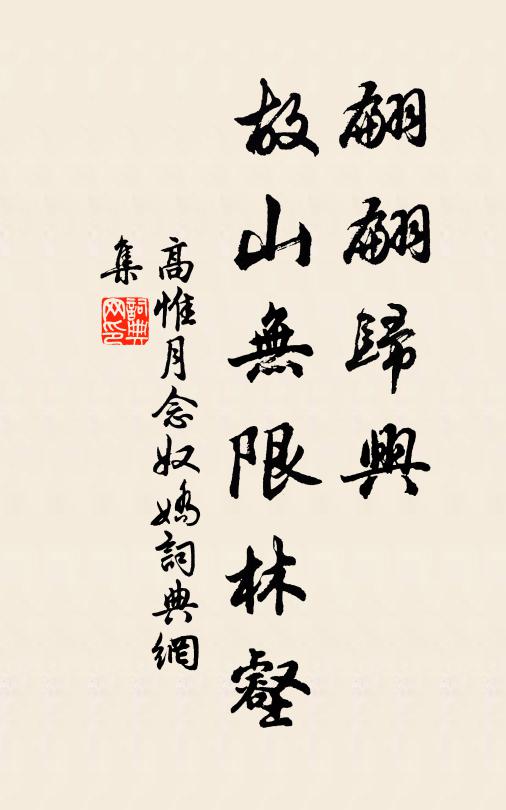 翩翩歸興
故山無限林壑
高惟月念奴嬌詞典網
集
詞典網印